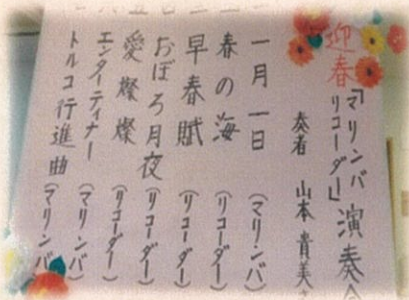 迎春
「マリンバ
リコーダー」演奏会
奏者 山本貴美
一月一日 (マリンバ)
春の海 (リコーダー)
早春賦 (リコーダー)
おぼろ月夜 (リコーダー)
愛燦燦 (リコーダー)
エンターティナー (マリンバ)
トルコ行進曲 (マリンバ)